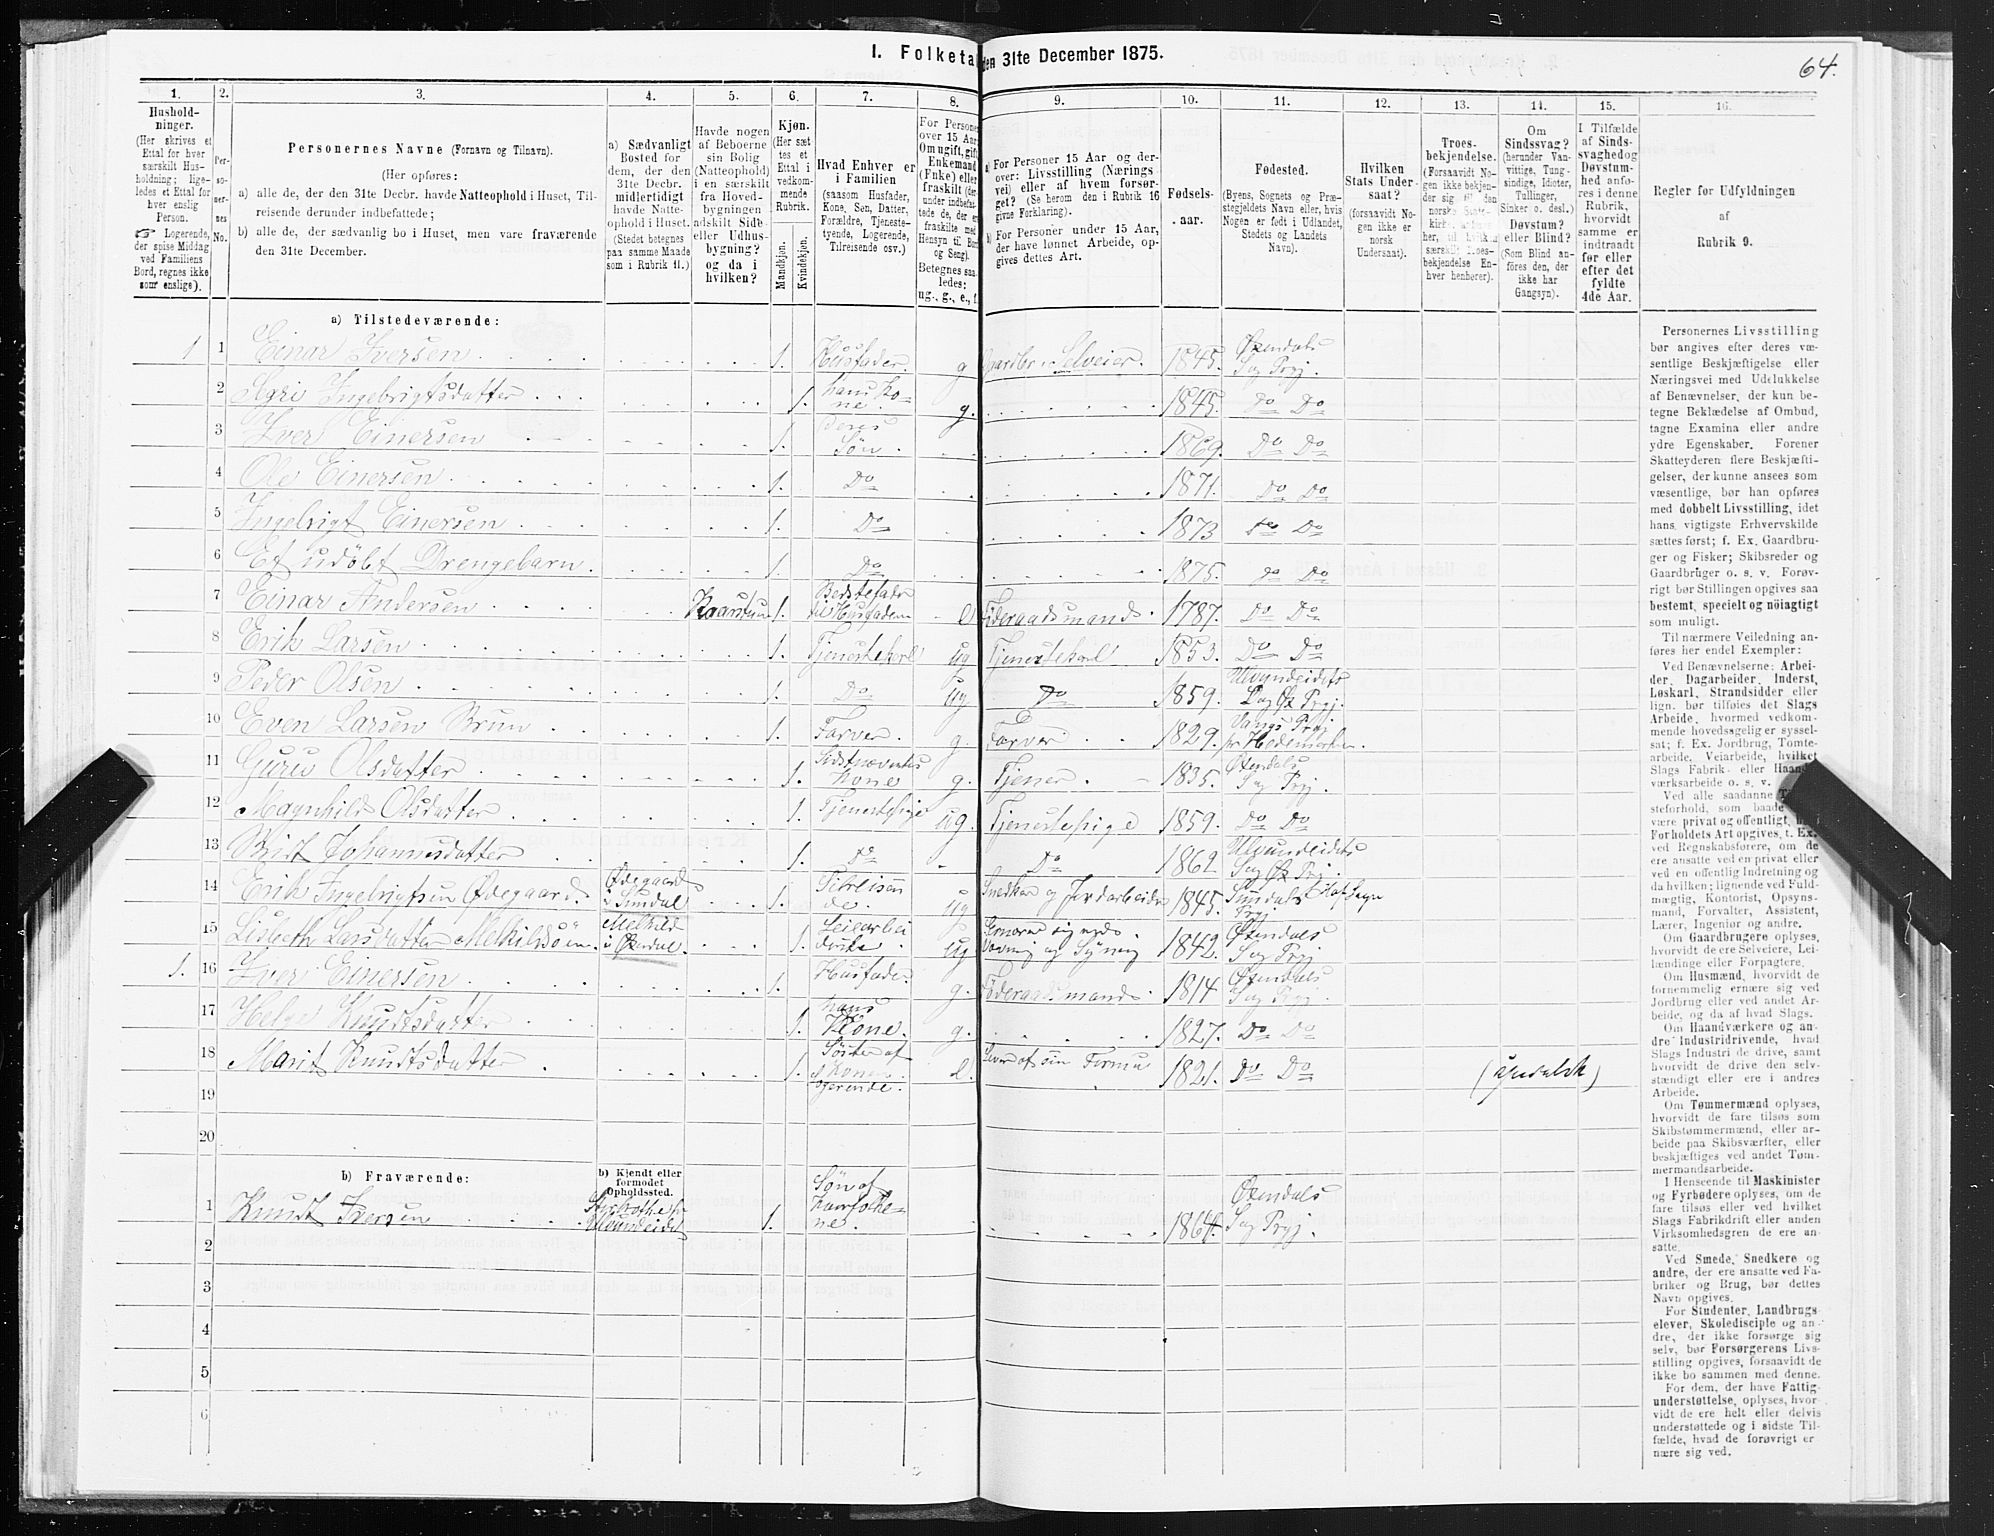 I. Folketa den 31te December 1875.
64.
1. 2. 3. 4. 5. 6. 7. 8. 9. 10. 11. 12. 13. 14. 15. 16.
Hushold-
ninger.
(Her skrives et
Ettal for hver
særskilt Hus-
holdning; lige-
ledes et Ettal for
hver enslig
Person.
☞ Logerende,
der spise Middag
ved Familiens
Bord, regnes ikke
som enslige).
Per-
so-
ner-
nes
No.
Personernes Navne (Fornavn og Tilnavn).
(Her opføres:
a) alle de, der den 31te Decbr. havde Natteophold i Huset, Til-
reisende derunder indbefattede;
b) alle de, der sædvanlig bo i Huset, men vare fraværende
den 31te December.
a) Sædvanligt
Bosted for
dem, der den
31te Decbr.
midlertidigt
havde Natte-
ophold i Huset.
(Stedet betegnes
paa samme Maade
som i Rubrik 11.)
Havde nogen
af Beboerne
sin Bolig
(Natteophold)
i en særskilt
fra Hoved-
bygningen
adskilt Side-
eller Udhus-
bygning?
og da i
hvilken?
Kjøn.
(Her sæt
tes et
Ettal i
vedkom-
mende
Rubrik.
Mandkjøn.
Kvindekjøn.
Hvad Enhver er
i Familien
(saasom Husfader,
Kone, Søn, Datter,
Forældre, Tjeneste-
tyende, Logerende,
Tilreisende osv.).
For Persone
over 15 Aar
Om ugift, gift
Enkemand
(Enke) eller
fraskilt (der
under indbefat-
tede de, der er
fraskilte med
Hensyn til Bor
og Seng).
Betegnes saa
ledes:
ug., g., e., f.
a) For Personer 15 Aar og der-
over: Livsstilling (Nærings
vei) eller af hvem forsør-
get? (Se herom den i Rubrik 16
givne Forklaring).
b) For Personer under 15 Aar,
der have lønnet Arbeide, op-
gives dettes Art.
Fødsels-
aar.
Fødested.
(Byens, Sognets og Præ-
stegjeldets Navn eller, hvis
Nogen er født i Udlandet,
Stedets og Landets
Navn).
Hvilken
Stats Under-
saat?
(forsaavidt No-
gen ikke er
norsk
Undersaat).
Troes-
bekjendelse.
(Forsaavidt No-
gen ikke bekjen-
der sig til den
norske Stats-
kirke, anføres
her, til hvilken
særskilt Troes-
bekjendelse En-
hver henhører).
Om
Sindssvag?
(herunder Van-
vittige, Tung-
sindige, Idioter,
Tullinger,
Sinker o. desl.)
Døvstum?
eller Blind?
(Som Blind an-
føres den, der
ikke har
Gangsyn).
I Tilfælde
af Sinds-
svaghedog
Døvstum-
hed anfø-
res i denne
Rubrik,
hvorvidt
samme er
indtraadt
før eller
efter det
fyldte
4de Aar.
Regler for Udfyldningen
af
Rubrik 9.
a) Tilstedeværende:
1 1 Einar Iversen 1. Husfader. g Gaardbr. Selveier. 1845. Øxendals Sog Prgj.
2 Sigri Ingebrigtsdatter 1. hans Kone. g. 1845. Do Do
3 Iver Einersen 1. Deres Søn. 1869. Do Do
4 Ole Einersen 1. Do 1871. Do Do
5 Ingebrigt Einersen 1. Do 1873 Do Do
6 Et udöbt Drengebarn. 1. Do 1875. Do Do
7 Einar Andersen Kaarstuen 1. Bedstefader til Husfaderen e Föderaadsmand. 1787. Do Do
8 Erik Larsen 1. Tjenestekarl ug Tjenestekarl 1853. Do Do
9 Peder Olsen 1. Do ug Do 1859. Ulvundeidets Sog Øx Prgj.
10 Even Larsen Brun 1. Farver. g. Farver 1829. Vangs Prgj. pr Hedemarken.
11 Guru Olsdatter 1. Sidstnævntes Kone g. Tjener. 1835. Øxendals Sog Prgj.
12 Magnhild Olsdatter 1. Tjenestepige ug. Tjenestepige 1859. Do Do
13 Brit Johannesdatter 1. Do Do 1862 Ulvundeidets Sog Øx Prgj.
14 Erik Ingebrigtsen Ødegaard. Ødegaard i Sundal 1. Tilreisende. ug Snedker og Jordarbeider 1845. Sundals Prgj
15 Lisbeth Larsdatter Melkildsöien. Melkild i Øxendal. 1. Leiearbeiderske ug Ernærer sig ved Vævning og Syning 1842. Øxendals Sog Prgj
1. 16 Iver Einersen 1. Husfader. g. Föderaadsmand. 1814 Øxendals Sog Prgj.
17 Helge Knudtsdatter 1. hans Kone. g. 1827. Do Do
18 Marit Knudtsdatter 1. Søster af Konen e. Lever af sin Formue 1821. Do Do
19
20
b) Fraværende:
b) Kjendt eller
formodet
Opholdssted.
1 Knudt Iversen Ulvundeidet 1. Søn af 1864. Øxendals Sog Prgj.
2
3
4
5
6
Personernes Livsstilling
bør angives efter deres væ-
sentlige Beskjæftigelse eller
Næringsvei med Udelukkelse
af Benævnelser, der kun be-
tegne Beklædelse af Ombud,
tagne Examina eller andre
ydre Egenskaber. Forener
Skatteyderen flere Beskjæfti-
gelser, der kunne ansees som
væsentlige, bør han opføres
med dobbelt Livsstilling, idet
hans vigtigste Erhvervskilde
sættes først; f. Ex. Gaardbru-
ger og Fisker; Skibsreder og
Gaardbruger o. s. v. Forøv-
rigt bør Stillingen opgives saa
bestemt, specielt og nöiagtigt
som muligt.
Til nærmere Veiledning an-
føres her endel Exempler:
Ved Benævnelserne: Arbei-
der, Dagarbeider, Inderst,
Løskarl, Strandsidder eller
lign. bør tilføies det Slags
Arbeide, hvormed vedkom-
mende hovedsagelig er syssel-
sat; f. Ex. Jordbrug, Tomte-
arbeide, Veiarbeide, hvilket
Slags Fabrik- eller Haand-
værksarbeide o. s. v.
Ved alle saadanne
steforhold, som baade
være privat og offentligt,
Forholdets Art opgives, t. Ex.
ved Regnskabsførere, om de
ere ansatte ved en privat eller
ved en offentlig Indretning og
da hvilken; lignende ved Fuld-
mægtig, Kontorist, Opsyns-
mand, Forvalter, Assistent,
Lærer, Ingeniør og andre.
Om Gaardbrugere oplyses,
hvorvidt de ere Selveiere, Lei-
lændinge eller Forpagtere.
Om Husmænd, hvorvidt de
fornemmelig ernære sig ved
Jordbrug eller ved andet Ar-
beide, og da af hvad Slags.
Om Haandværkere og an-
dre Industridrivende, hvad
Slags Industri de drive, samt
hvorvidt de drive den selv-
stændigt eller ere i andres
Arbeide.
Om Tømmermænd oplyses,
hvorvidt de fare tilsøs som
Skibstømmermænd, eller ar-
beide paa Skibsværfter, eller
beskjæftiges ved andet Tøm-
mermandsarbeide.
I Henseende til Maskinister
og Fyrbødere oplyses, om de
fare tilsøs eller ved hvilket
Slags Fabrikdrift eller anden
Virksomhedsgren de ere an-
satte.
Ved Smede, Snedkere og
andre, der ere ansatte ved Fa-
briker og Brug, bør dettes
Navn opgives.
For Studenter, Landbrugs-
elever, Skoledisciple og an-
dre, der ikke forsørge sig
selv, bør Forsørgerens Livs-
stilling opgives, forsaavidt de
ikke bo sammen med denne.
For dem, der have Fattig-
understøttelse, oplyses, hvor-
vidt de ere helt eller delvis
understøttede og i sidste Til-
fælde, hvad de forøvrigt er
nære sig ved.